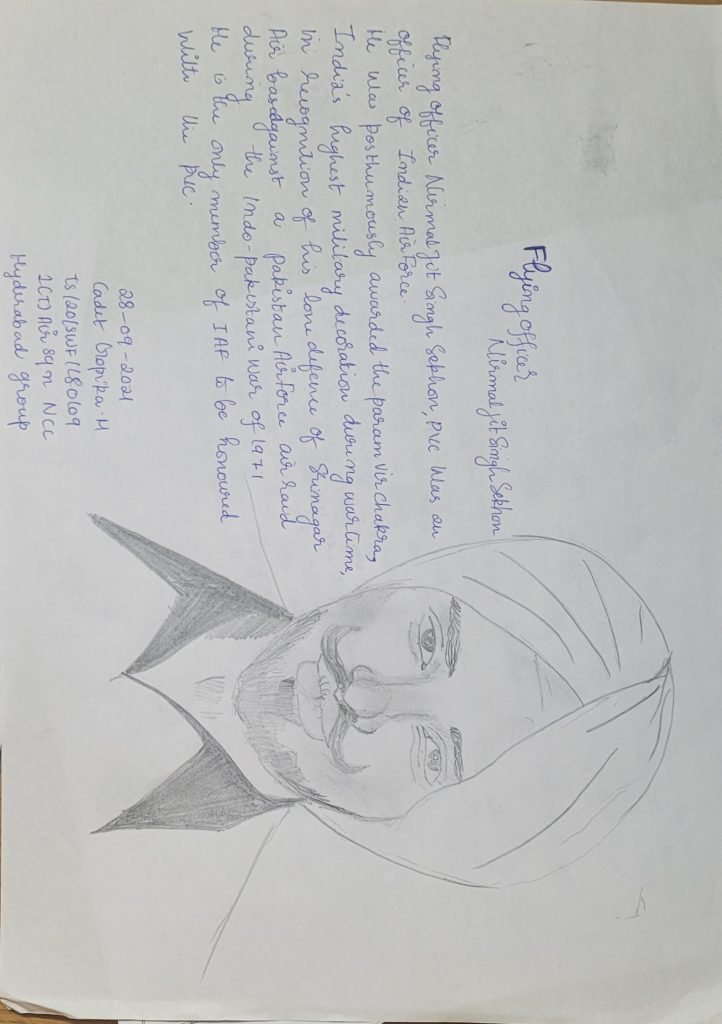 Flying officer
Nirmal Jit Singh Sekhon
Flying officer Nirmal Jit Singh Sekhon, PVC was an
officer of Indian Air Force.
He was posthumously awarded the param vir chakra,
India's highest military decoration during wartime,
in recognition of his lone defence of Srinagar
Air base against a pakistan Air Force air raid
during the Indo-pakistani war of 1971
He is the only member of IAF to be honoured
with the PVC.
28-09-2021
Cadet Gopika.H
TS/20/SWF/680169
1(T) Air sqn NCC
Hyderabad group